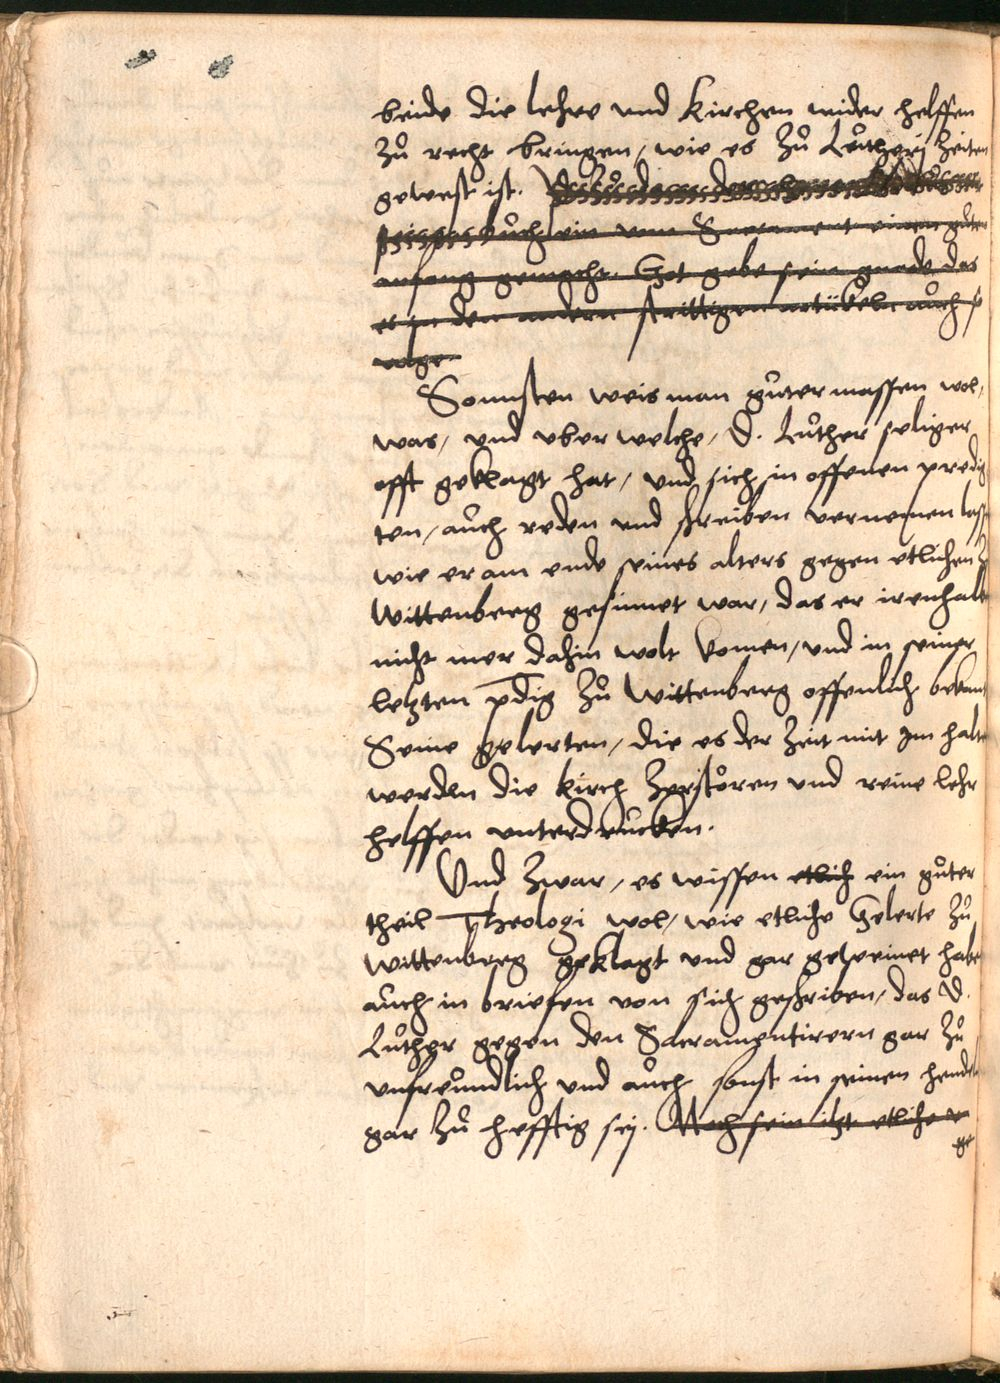 beide die lehre und Kirchen wider helffen
zů recht bringen, wie es zů Lůtherj Zeiten
gewest ist.
bůch ein vom Sacrament einen gůten
anfang gemacht. Got gebe sein gnade, das
er in den andern strittigen artickeln aůch
Sonnsten weis man gůtermassen wol,
was, und uber welche, D. Lůther seliger
offt geklagt hat, und sich in offenen predig
ten, aůch reden und schreiben vernemen lass
wie er am ende seines alters gegen etlichen Z
Wittenberg gesinnet war, das er irenhalb
nicht mer dahin wolt komen, und in seiner
letzten pdig zů Wittenberg offenlich bekant
Seine gelerten, die es der Zeit mit Im halte
werden die Kirch zerstören und reine lehr
helffen unterdrucken.
Und zwar, es wissen etlich ein gůter
theil Theologi wol, wie etliche Gelerte zů
Wittenberg geklagt und gar geweinet habe
aůch in briefen von sich geschriben, das D.
Lůther gegen den Sacramentirern gar zů
unfreůndlich und aůch sonst in seinen hendel
gar zů hefftig sej. Noch sein itzt etliche
ge